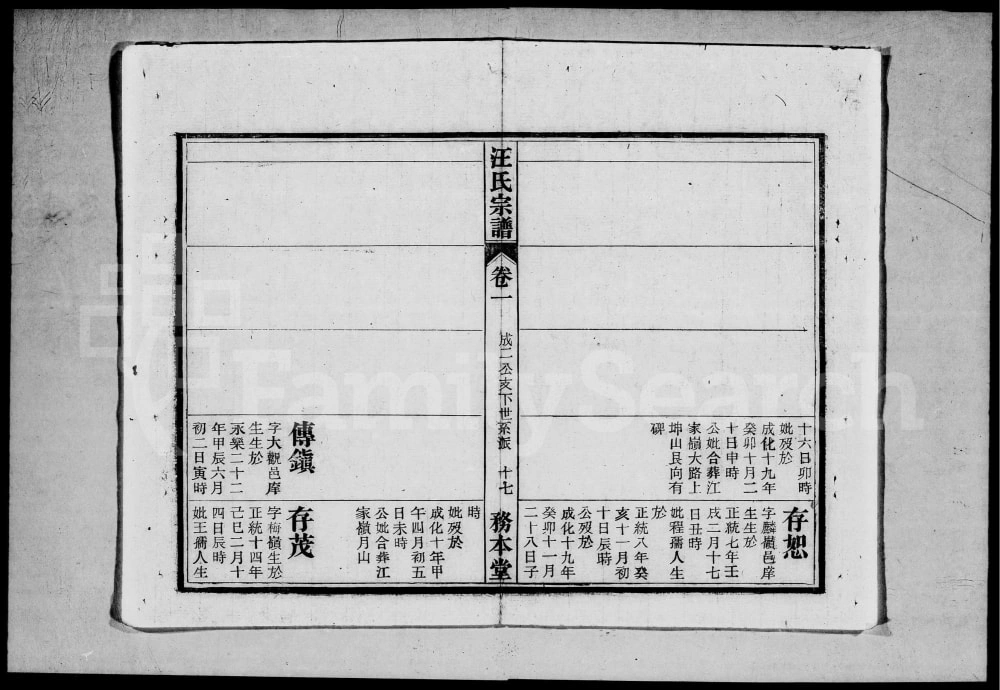 十六日卯時
妣歿於
成化十九年
癸卯十月二
十日申時
公妣合葬江
家嶺大路上
坤山艮向有
碑
存恕
字麟嶺邑庠
生生於
正統七年壬
戌二月十七
日丑時
妣程孺人生
於
正統八年癸
亥十一月初
十日辰時
公歿於
成化十九年
癸卯十一月
二十八日子
汪氏宗譜
卷一
成二公亥下世系派
十七
務本堂
傳鎮
字大觀邑庠
生生於
永樂二十二
年甲辰六月
初二日寅時
時
妣歿於
成化十年甲
午四月初五
日未時
公妣合葬江
家嶺月山
存茂
字梅嶺生於
正統十四年
己巳二月十
四日辰時
妣王孺人生
FamilySearch